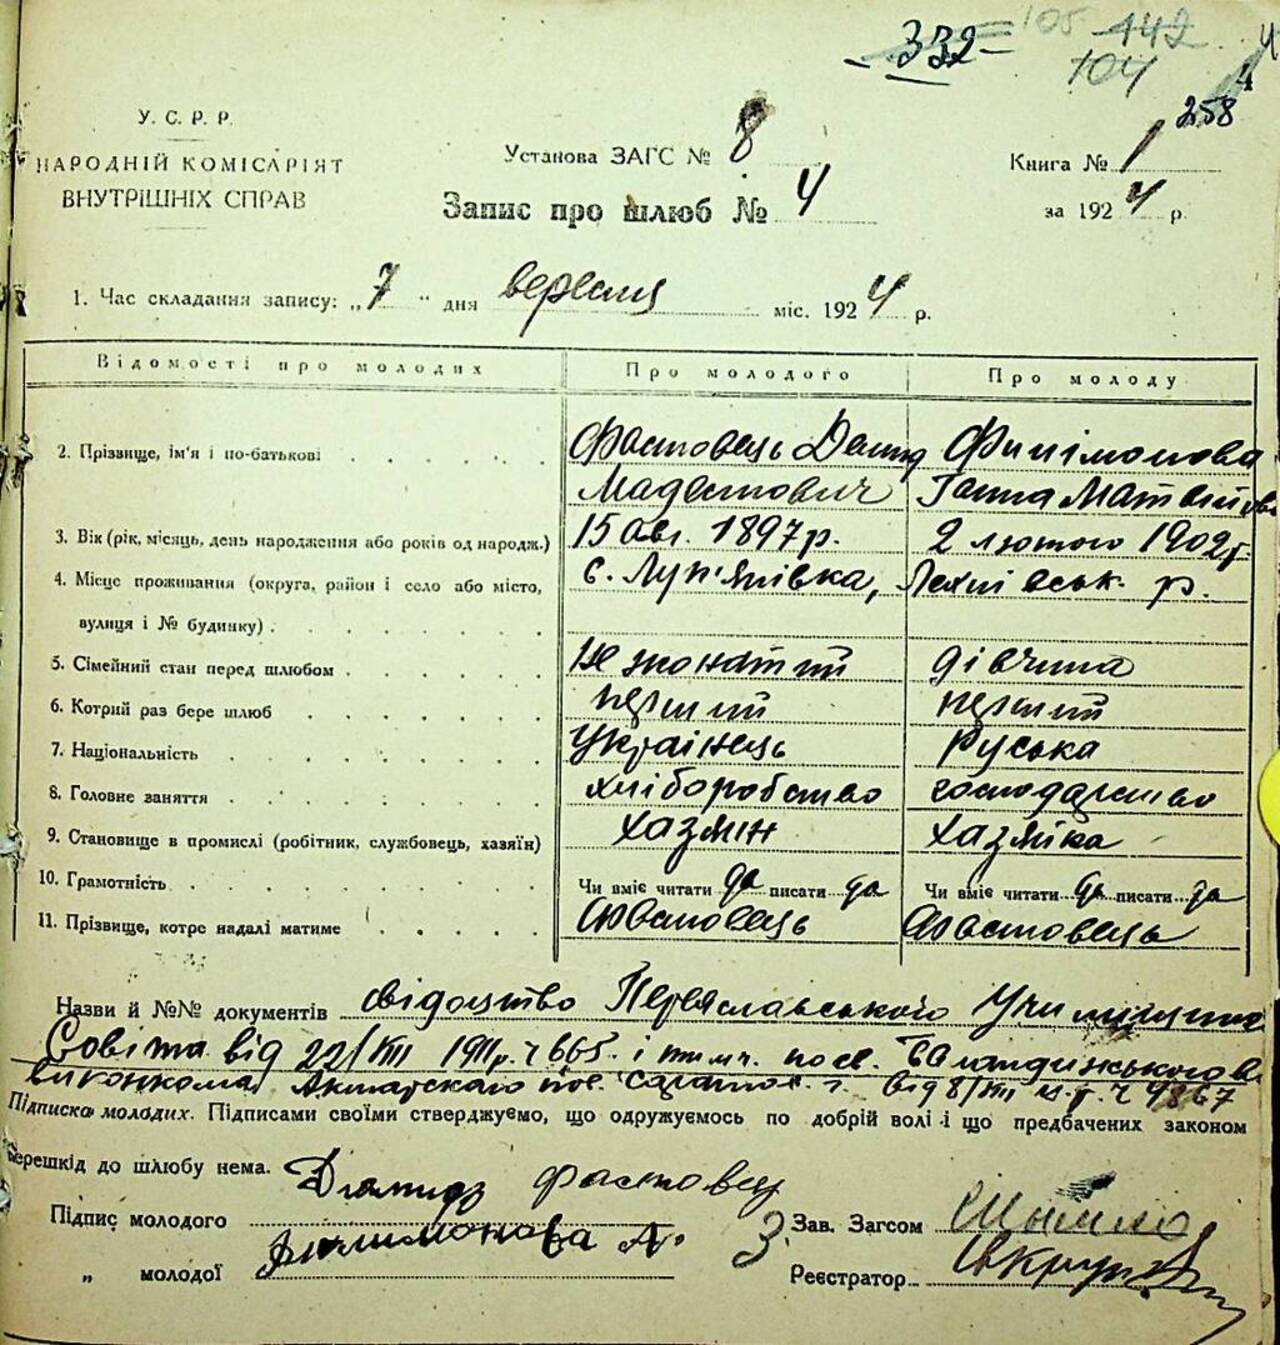 332 105 442 4
104 4
258
У. С. Р. Р.
НАРОДНІЙ КОМІСАРІЯТ
ВНУТРІШНІХ СПРАВ
Установа ЗАГС № 8
Книга № 1
Запис про шлюб № 4
за 1924 р.
1. Час складання запису: „7" дня вересня міс. 1924 р.
Відомості про молодих Про молодого Про молоду
2. Прізвище, ім'я і по-батькові Фастовець Демид Филімонова
Мадестович Ганна Матвійов
3. Вік (рік, місяць, день народження або років од народж.) 15 авг. 1897 р. 2 лютого 1902 р.
4. Місце проживання (округа, район і село або місто, с. Луп'янівка, Лехнівськ. р.
вулиця і № будинку)
5. Сімейний стан перед шлюбом не жонатий дівчина
6. Котрий раз бере шлюб перший перший
7. Національність Українець Руська
8. Головне заняття хліборобство господарство
9. Становище в промислі (робітник, службовець, хазяїн) хазяїн хазяйка
10. Грамотність Чи вміє читати да писати да Чи вміє читати да писати да
11. Прізвище, котре надалі матиме Фастовець Фастовець
Назви й №№ документів свідоцтво Переяславського Училищного
Совіта від 22/VIII 1911 р. ч 665 і тимч. посв.
виконкома Акмарскаго від 8/VIII ч 9867
Підписка молодих. Підписами своїми стверджуємо, що одружуємось по добрій волі і що предбачених законом
перешкід до шлюбу нема.
Підпис молодого Демид Фастовец Зав. Загсом
„ молодої Филимонова А. З. Реєстратор